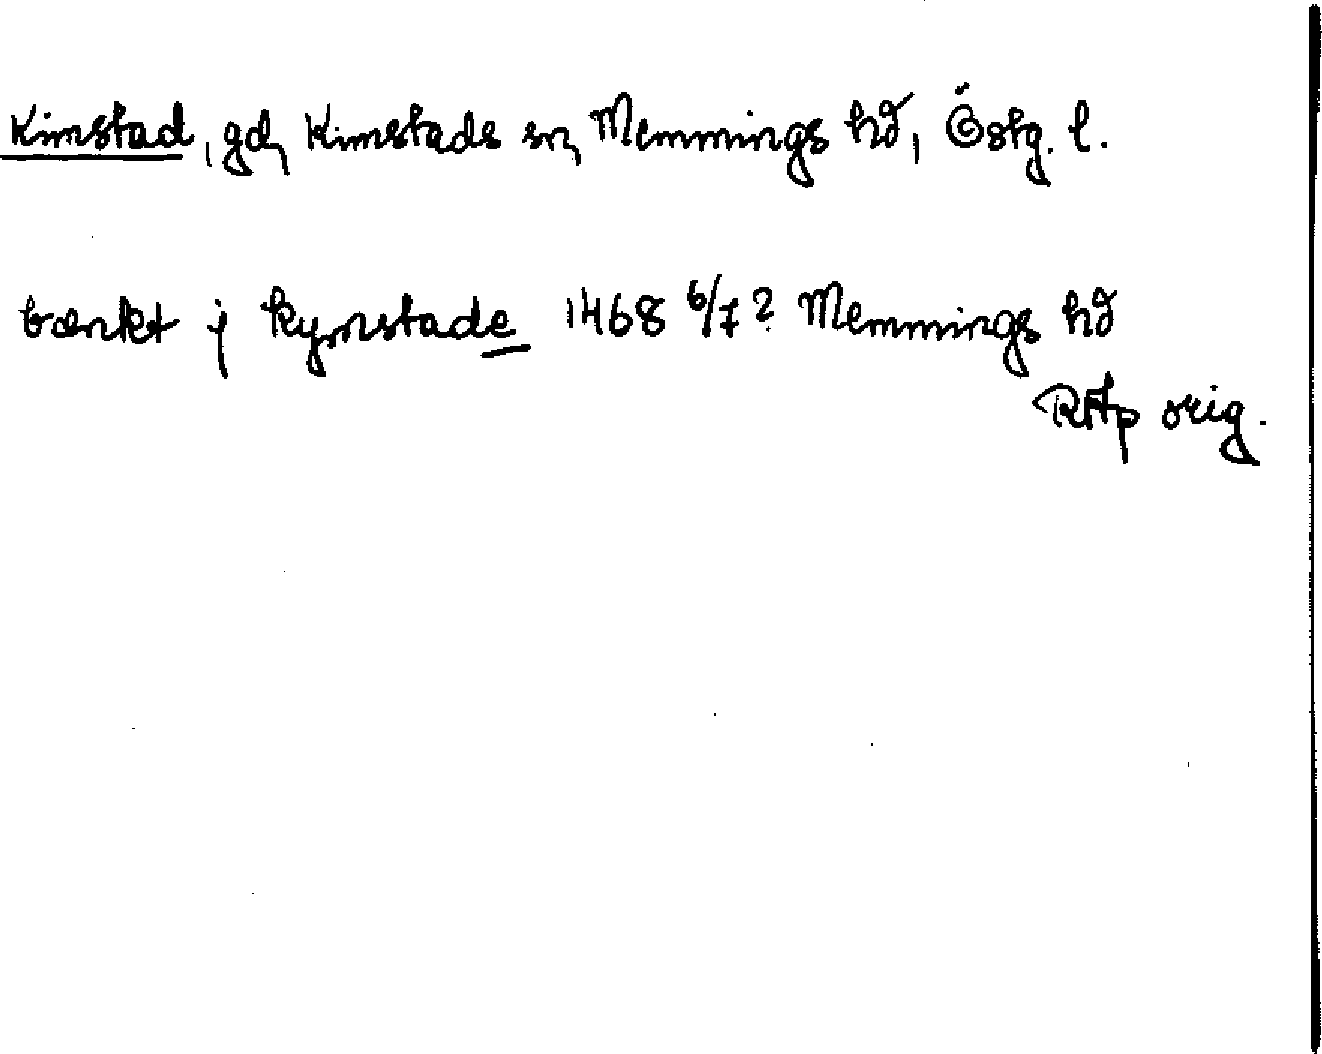 Kimstad, gd, Kimstads sn, Memmings hd, Östg. l.
bænkt j kymstade 1468 6/7? Memmings hd
RAp orig.